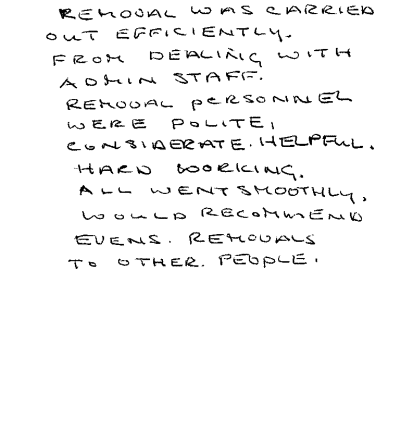 REMOVAL WAS CARRIED
OUT EFFICIENTLY.
FROM DEALING WITH
ADMIN STAFF.
REMOVAL PERSONNEL
WERE POLITE,
CONSIDERATE. HELPFUL.
HARD WORKING.
ALL WENT SMOOTHLY.
WOULD RECOMMEND
EVENS. REMOVALS
TO OTHER. PEOPLE.